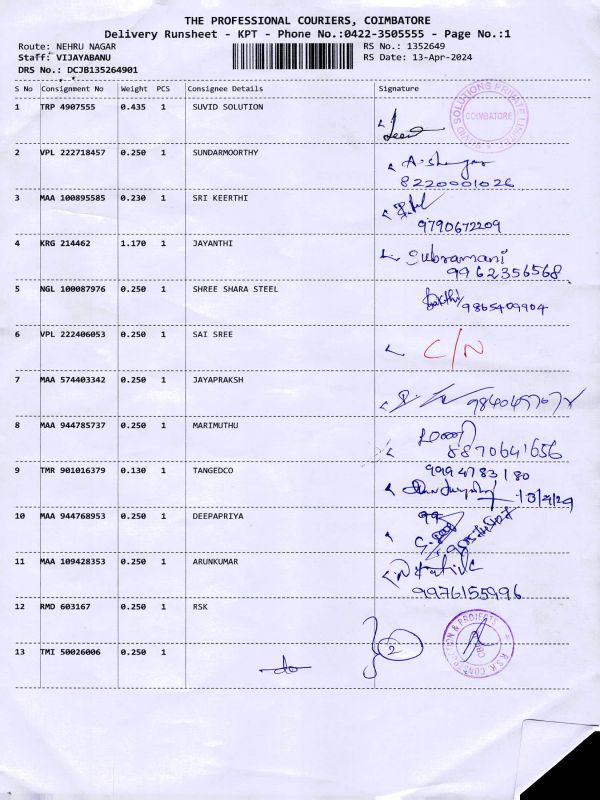 THE PROFESSIONAL COURIERS, COIMBATORE
Delivery Runsheet - KPT - Phone No.:0422-3505555 - Page No.:1
Route: NEHRU NAGAR RS No.: 1352649
Staff: VIJAYABANU RS Date: 13-Apr-2024
DRS No.: DCJB135264901
S No Consignment No Weight PCS Consignee Details Signature
1 TRP 4907555 0.435 1 SUVID SOLUTION
COIMBATORE
2 VPL 222718457 0.250 1 SUNDARMOORTHY
8220001026
3 MAA 100895585 0.230 1 SRI KEERTHI
9790672209
4 KRG 214462 1.170 1 JAYANTHI Subramani
9962356568
5 NGL 100087976 0.250 1 SHREE SHARA STEEL
9865409904
6 VPL 222406053 0.250 1 SAI SREE C/N
7 MAA 574403342 0.250 1 JAYAPRAKSH
8 MAA 944785737 0.250 1 MARIMUTHU
8870641656
9 TMR 901016379 0.130 1 TANGEDCO 9994783180
13/4/24
10 MAA 944768953 0.250 1 DEEPAPRIYA 99
11 MAA 109428353 0.250 1 ARUNKUMAR
9976155996
12 RMD 603167 0.250 1 RSK
13 TMI 50026006 0.250 1 2
-do-